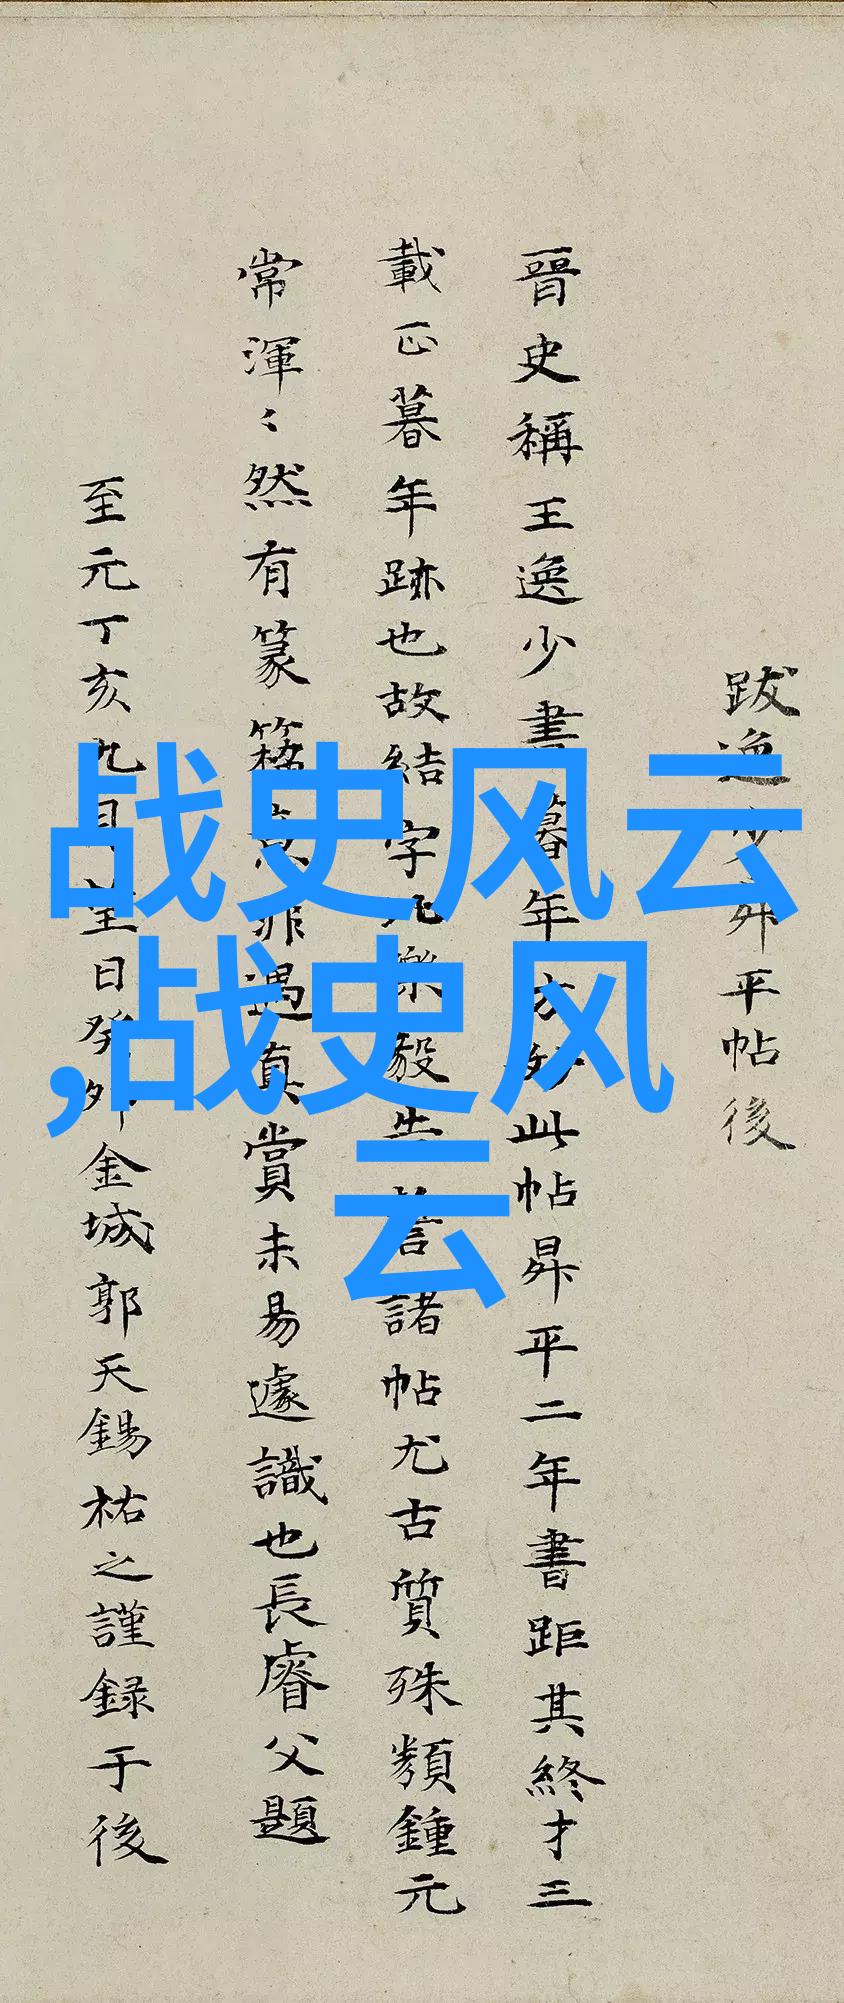 跋逸少昇平帖後
晉史稱王逸少書暮年方妙此帖昇平二年書距其終才三
載正暮年跡也故結字比樂毅告誓諸帖尤古質殊類鍾元
常渾〻然有篆籀意非遇真賞未易遽識也長睿父題
至元丁亥九月望日癸卯金城郭天錫祐之謹録于後
战史风云
,战史风
云